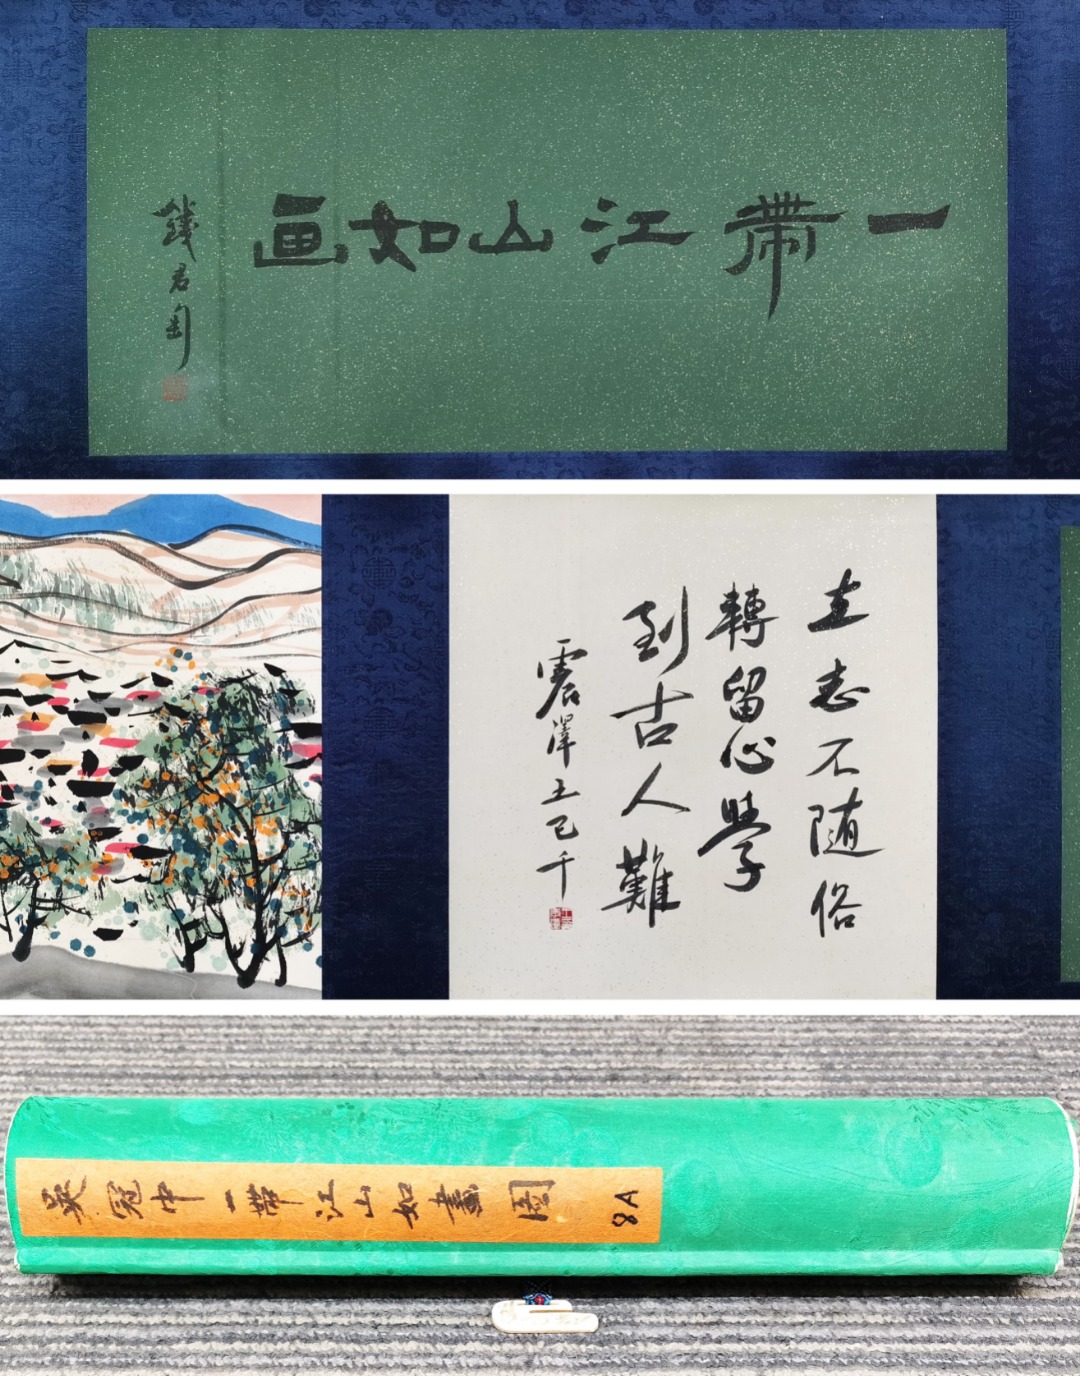 一帶江山如画
錢君匋
立志不随俗
轉留心學
到古人難
震澤王己千
吳冠中一帶江山如畫圖
8A